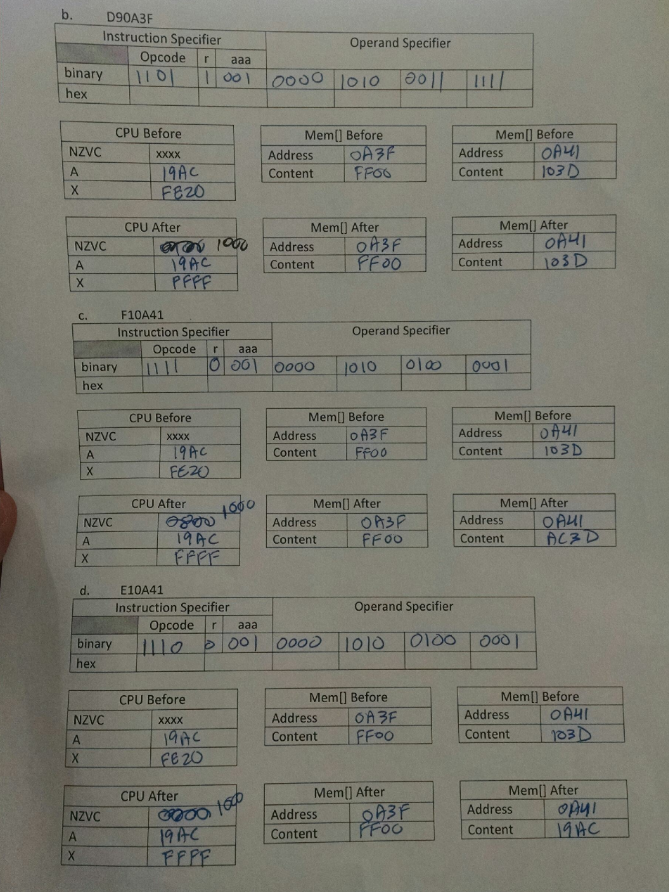 b. D90A3F
Instruction Specifier Operand Specifier
Opcode r aaa
binary 1101 1 001 0000 1010 0011 1111
hex
CPU Before Mem[] Before Mem[] Before
NZVC xxxx Address 0A3F Address 0A41
A 19AC Content FF00 Content 103D
X FE20
CPU After Mem[] After Mem[] After
NZVC 1000 Address 0A3F Address 0A41
A 19AC Content FF00 Content 103D
X FFFF
c. F10A41
Instruction Specifier Operand Specifier
Opcode r aaa
binary 1111 0 001 0000 1010 0100 0001
hex
CPU Before Mem[] Before Mem[] Before
NZVC xxxx Address 0A3F Address 0A41
A 19AC Content FF00 Content 103D
X FE20
CPU After Mem[] After Mem[] After
NZVC 1000 Address 0A3F Address 0A41
A 19AC Content FF00 Content AC3D
X FFFF
d. E10A41
Instruction Specifier Operand Specifier
Opcode r aaa
binary 1110 0 001 0000 1010 0100 0001
hex
CPU Before Mem[] Before Mem[] Before
NZVC xxxx Address 0A3F Address 0A41
A 19AC Content FF00 Content 103D
X FE20
CPU After Mem[] After Mem[] After
NZVC Address 0A3F Address 0A41
A 19AC Content FF00 Content 19AC
X FFFF